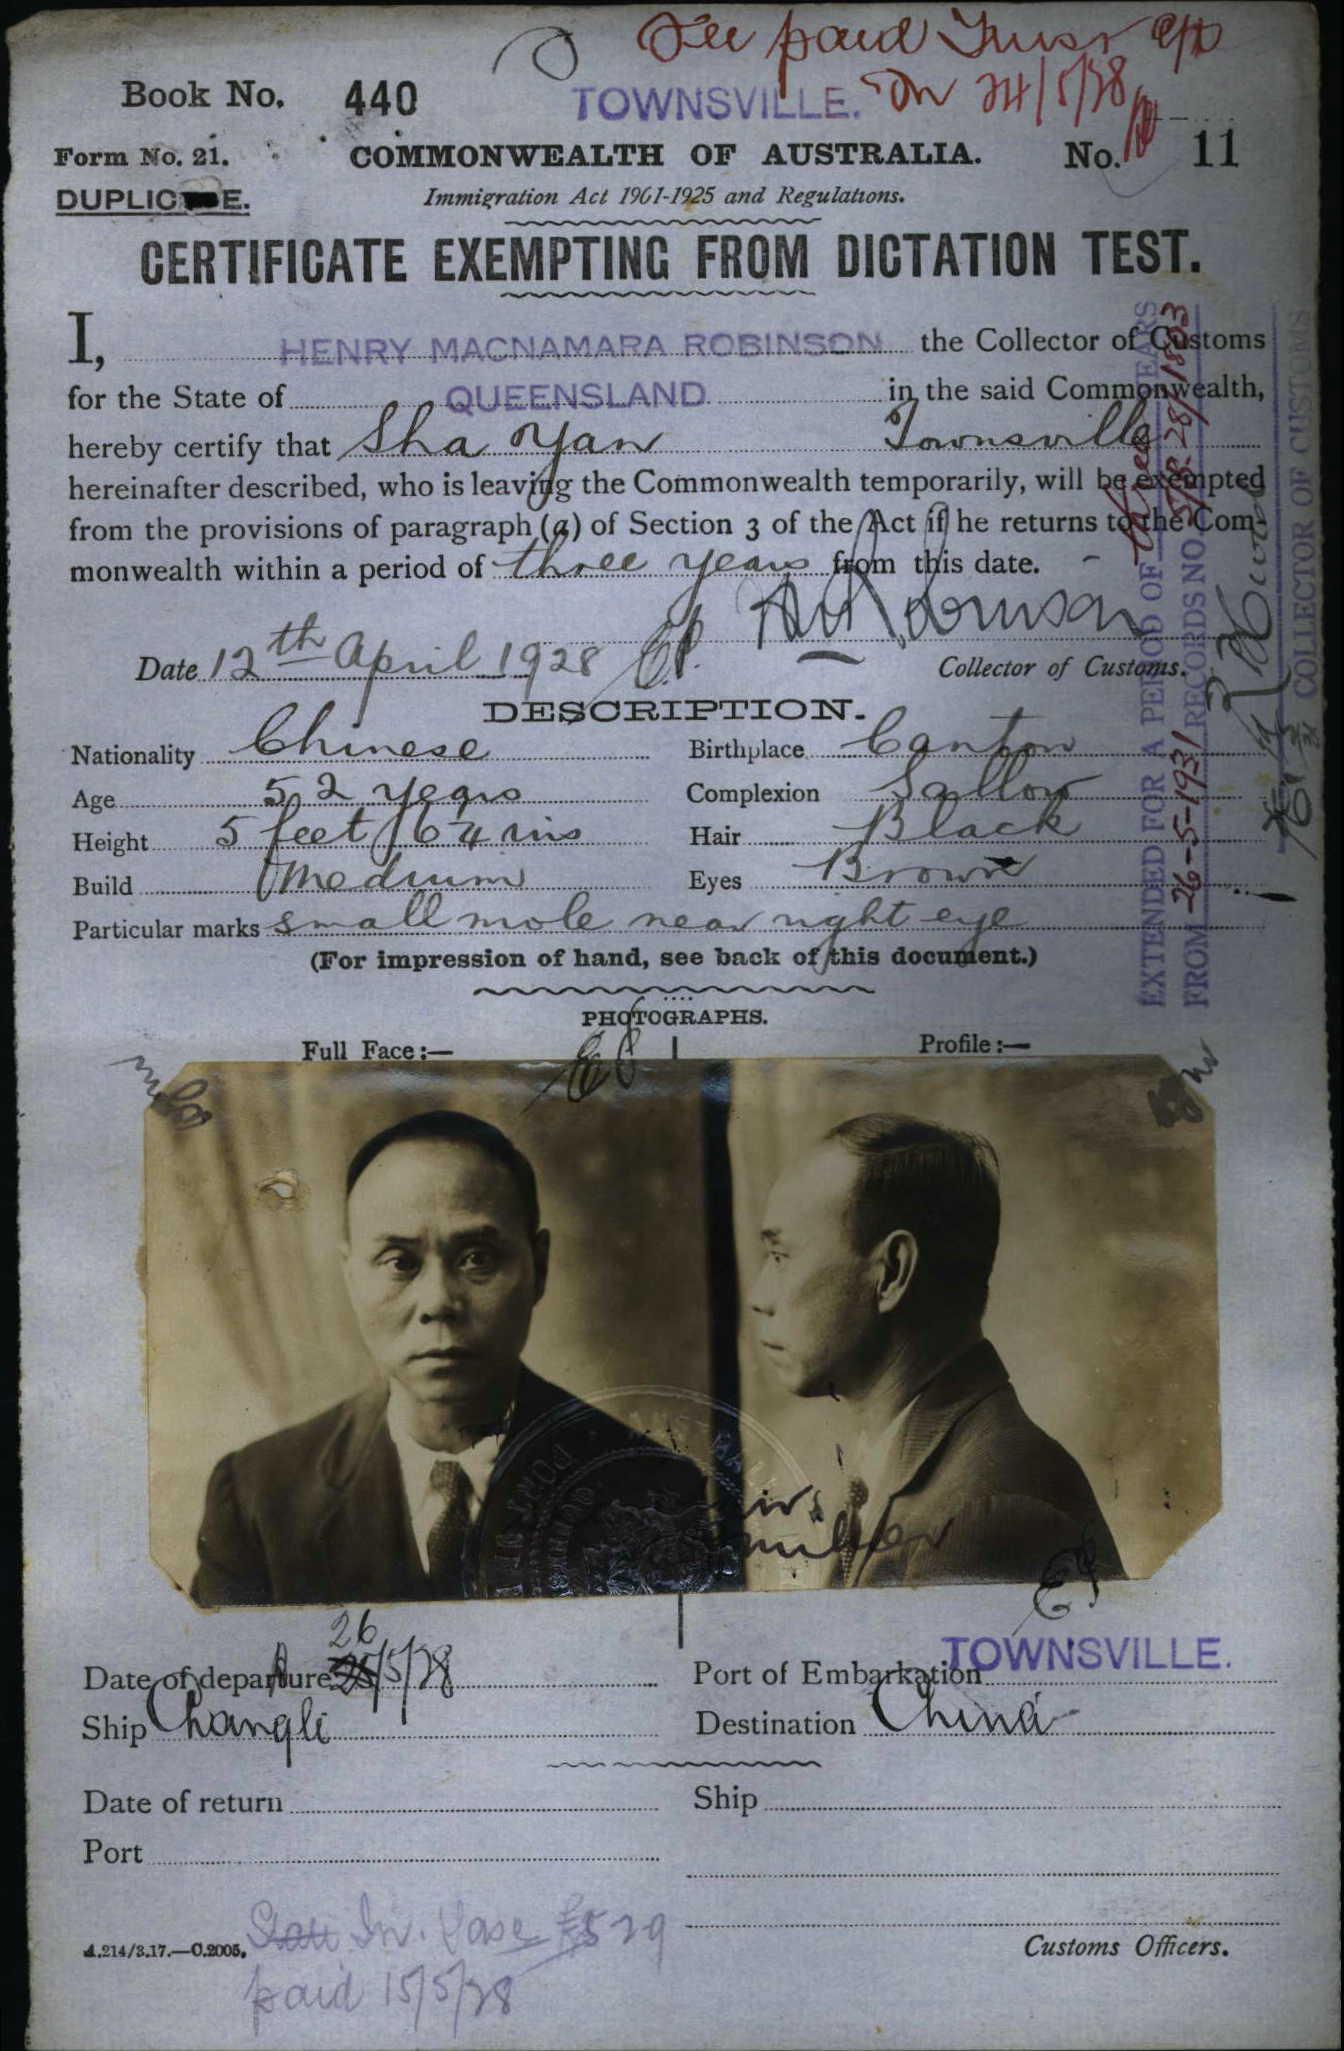 Fee paid Trust a/c
Book No. 440 TOWNSVILLE. on 24/5/28
Form No. 21. COMMONWEALTH OF AUSTRALIA. No. 11
DUPLICATE. Immigration Act 1901-1925 and Regulations.
CERTIFICATE EXEMPTING FROM DICTATION TEST.
I, HENRY MACNAMARA ROBINSON the Collector of Customs
for the State of QUEENSLAND in the said Commonwealth,
hereby certify that Sha Yan Townsville
hereinafter described, who is leaving the Commonwealth temporarily, will be exempted
from the provisions of paragraph (a) of Section 3 of the Act if he returns to the Com-
monwealth within a period of three years from this date.
HM Robinson
Date 12th April 1928 Collector of Customs.
DESCRIPTION.
Nationality Chinese Birthplace Canton
Age 52 years Complexion Sallow
Height 5 feet 6¼ ins Hair Black
Build Medium Eyes Brown
Particular marks small mole near right eye
(For impression of hand, see back of this document.)
EXTENDED FOR A PERIOD OF three YEARS
FROM 26-5-1931 RECORDS NO.
COLLECTOR OF CUSTOMS
PHOTOGRAPHS.
Full Face:— Profile:—
Date of departure 26/5/28 Port of Embarkation TOWNSVILLE.
Ship Changte Destination China
Date of return Ship
Port
paid 15/5/28
A.214/3.17.—C.2005. Customs Officers.